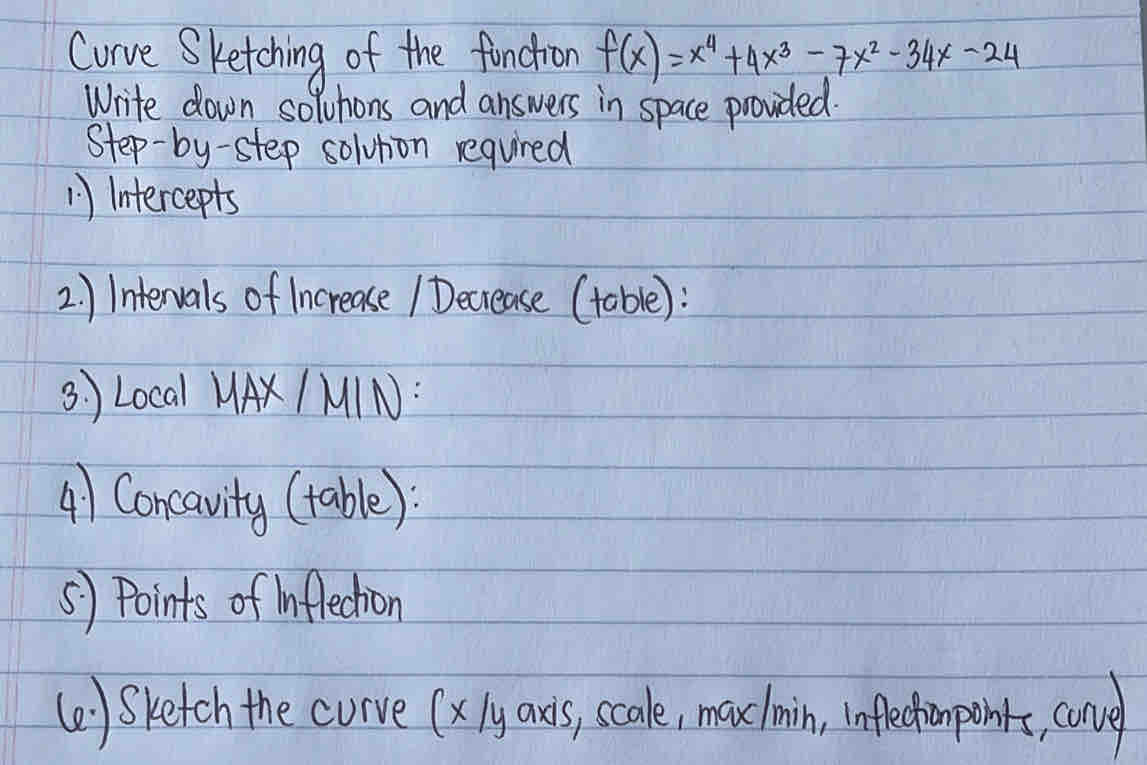 Curve Sketching of the function f(x) = x⁴ + 4x³ - 7x² - 34x - 24
Write down solutions and answers in space provided.
Step-by-step solution required
1.) Intercepts
2.) Intervals of Increase / Decrease (table):
3.) Local MAX / MIN:
4.) Concavity (table):
5.) Points of Inflection
6.) Sketch the curve (x/y axis, scale, max/min, inflectionpoints, curve)